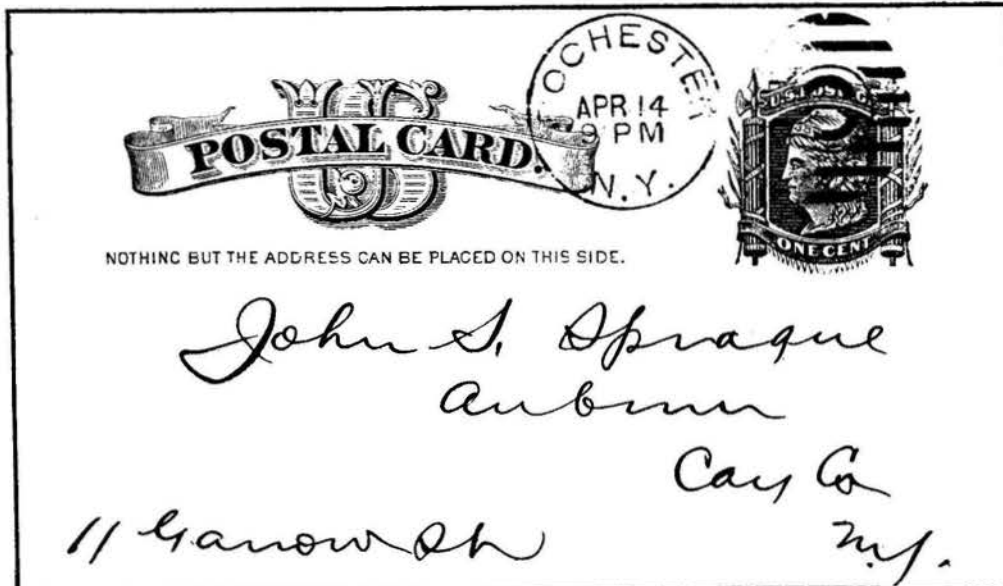 ROCHESTER
APR 14
9 PM
N.Y.
U.S. POSTAGE
US
POSTAL CARD.
ONE CENT
NOTHING BUT THE ADDRESS CAN BE PLACED ON THIS SIDE.
John S. Sprague
Auburn
Cay Co
11 Garrow St N.Y.